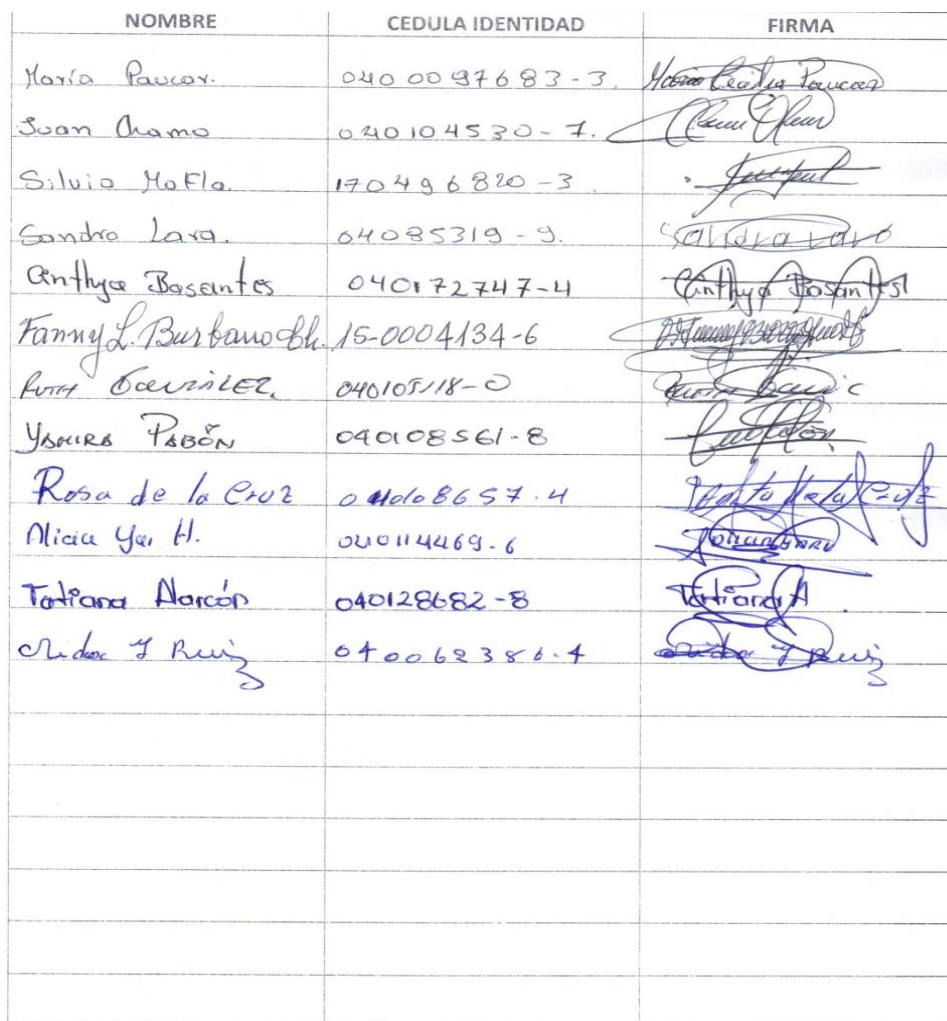 NOMBRE CEDULA IDENTIDAD FIRMA
María Paucar. 0400097683-3. Maria Cecilia Paucar
Juan Chamo 040104530-7.
Silvia Mafla. 170496820-3
Sandra Lara. 04085319-9. Sandra Lara
Cinthya Basantes 040172747-4 Cinthya Basantes
Fanny L. Burbano Ch. 15-0004134-6
Ruth González 040105118-0
Yamira Pabón 040108561-8
Rosa de la Cruz 040108657.4 de la Cruz
Alicia Yar H. 040114469-6
Tatiana Alarcón 040128682-8 Tatiana A
Aida Y Ruiz 040062386.4 Aida Y Ruiz